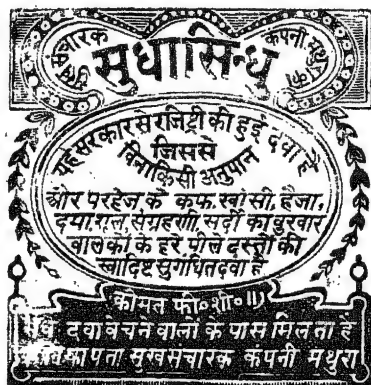 सुख संचारक कंपनी मथुरा का
सुधासिन्धु
यह सरकार से रजिष्ट्री की हुई दवा है
जिससे
बिना किसी अनुपान
और परहेज के कफ, खांसी, हैजा,
दमा, शूल, संग्रहणी, सर्दी का बुखार
बालकों के हरे पीले दस्तों की
स्वादिष्ट सुगंधित दवा है
कीमत फी॰ शी॰ ॥)
सब दवा बेचने वालों के पास मिलता है
का पता सुखसंचारक कंपनी मथुरा